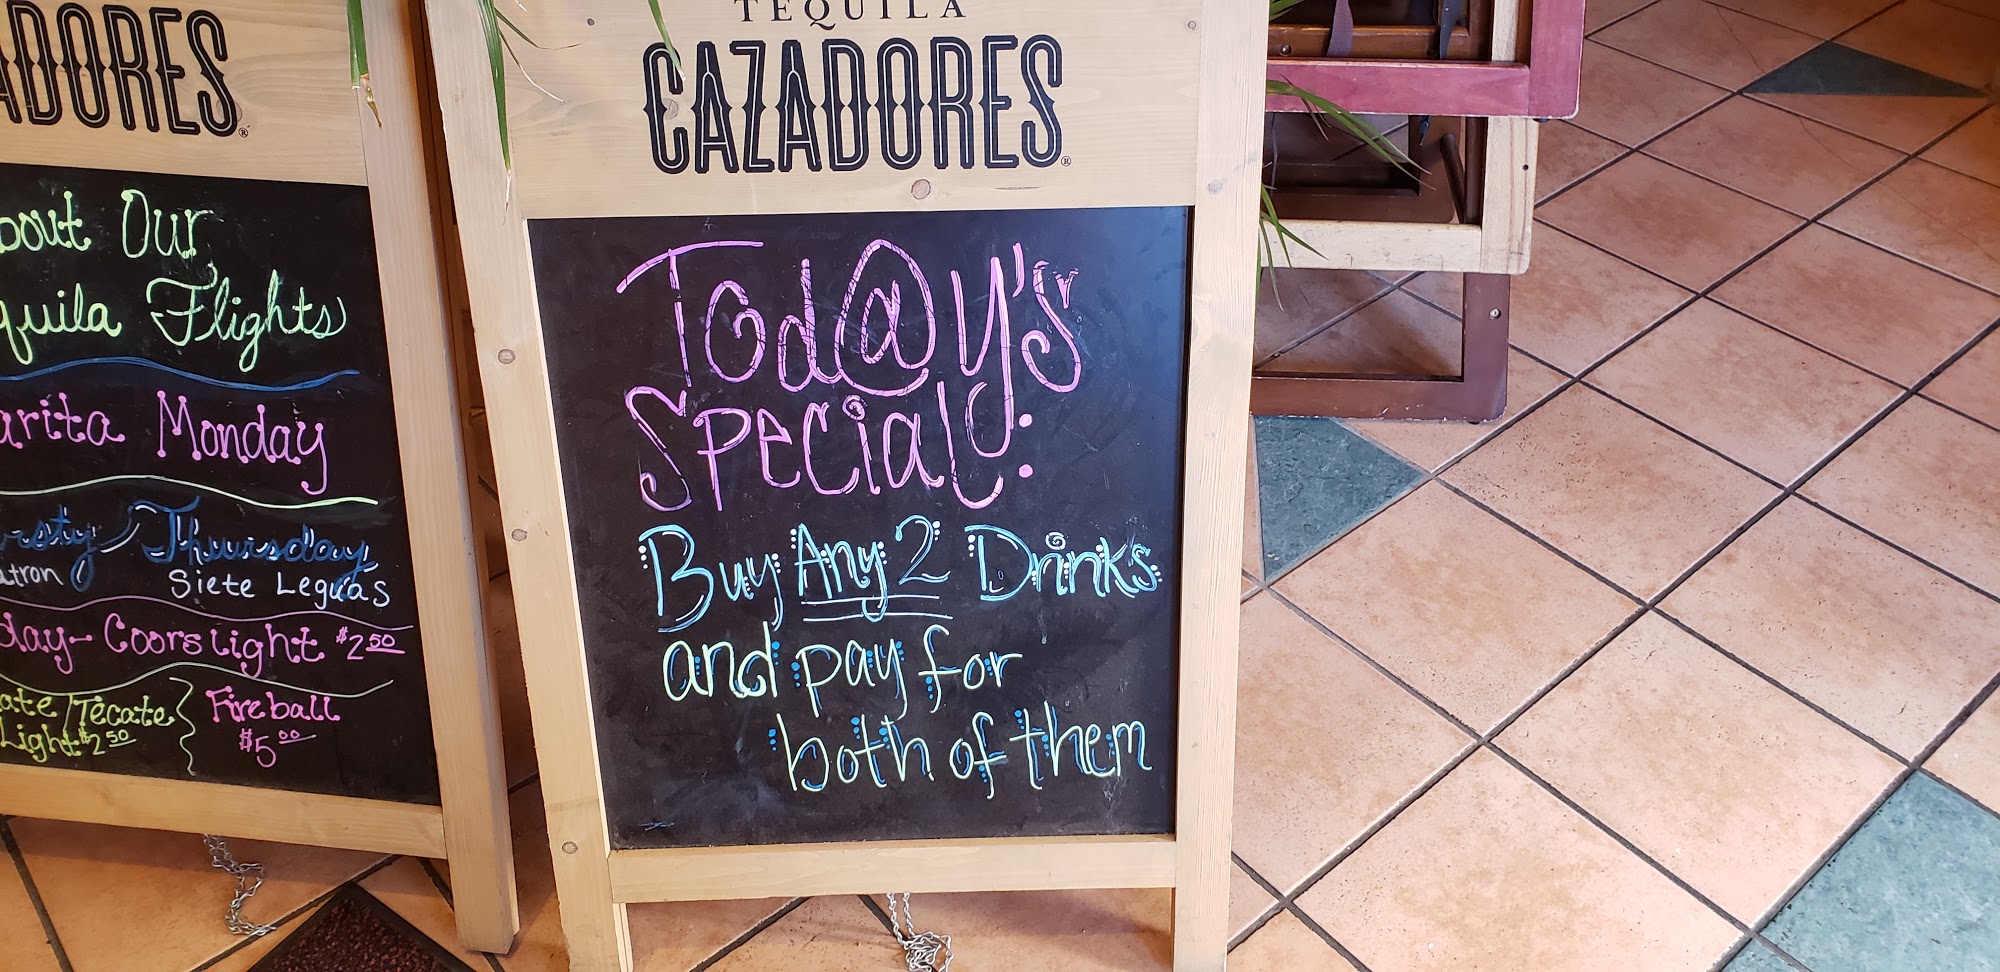 ADORES®
bout Our
quila Flights
arita Monday
rsty Thursday
atron Siete Leguas
day- Coors Light $2 50
ate/Tecate
Light $2 50
Fireball
$5 00
TEQUILA
CAZADORES®
Tod@y's
Special:
Buy Any 2 Drinks
and pay for
both of them